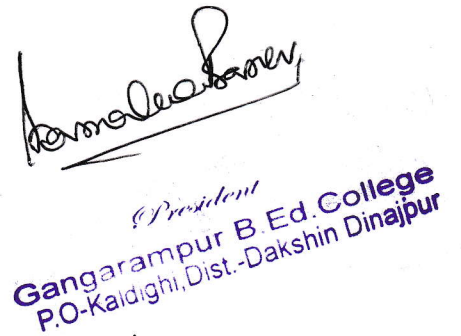 President
Gangarampur B.Ed.College
P.O-Kaldighi,Dist.-Dakshin Dinajpur